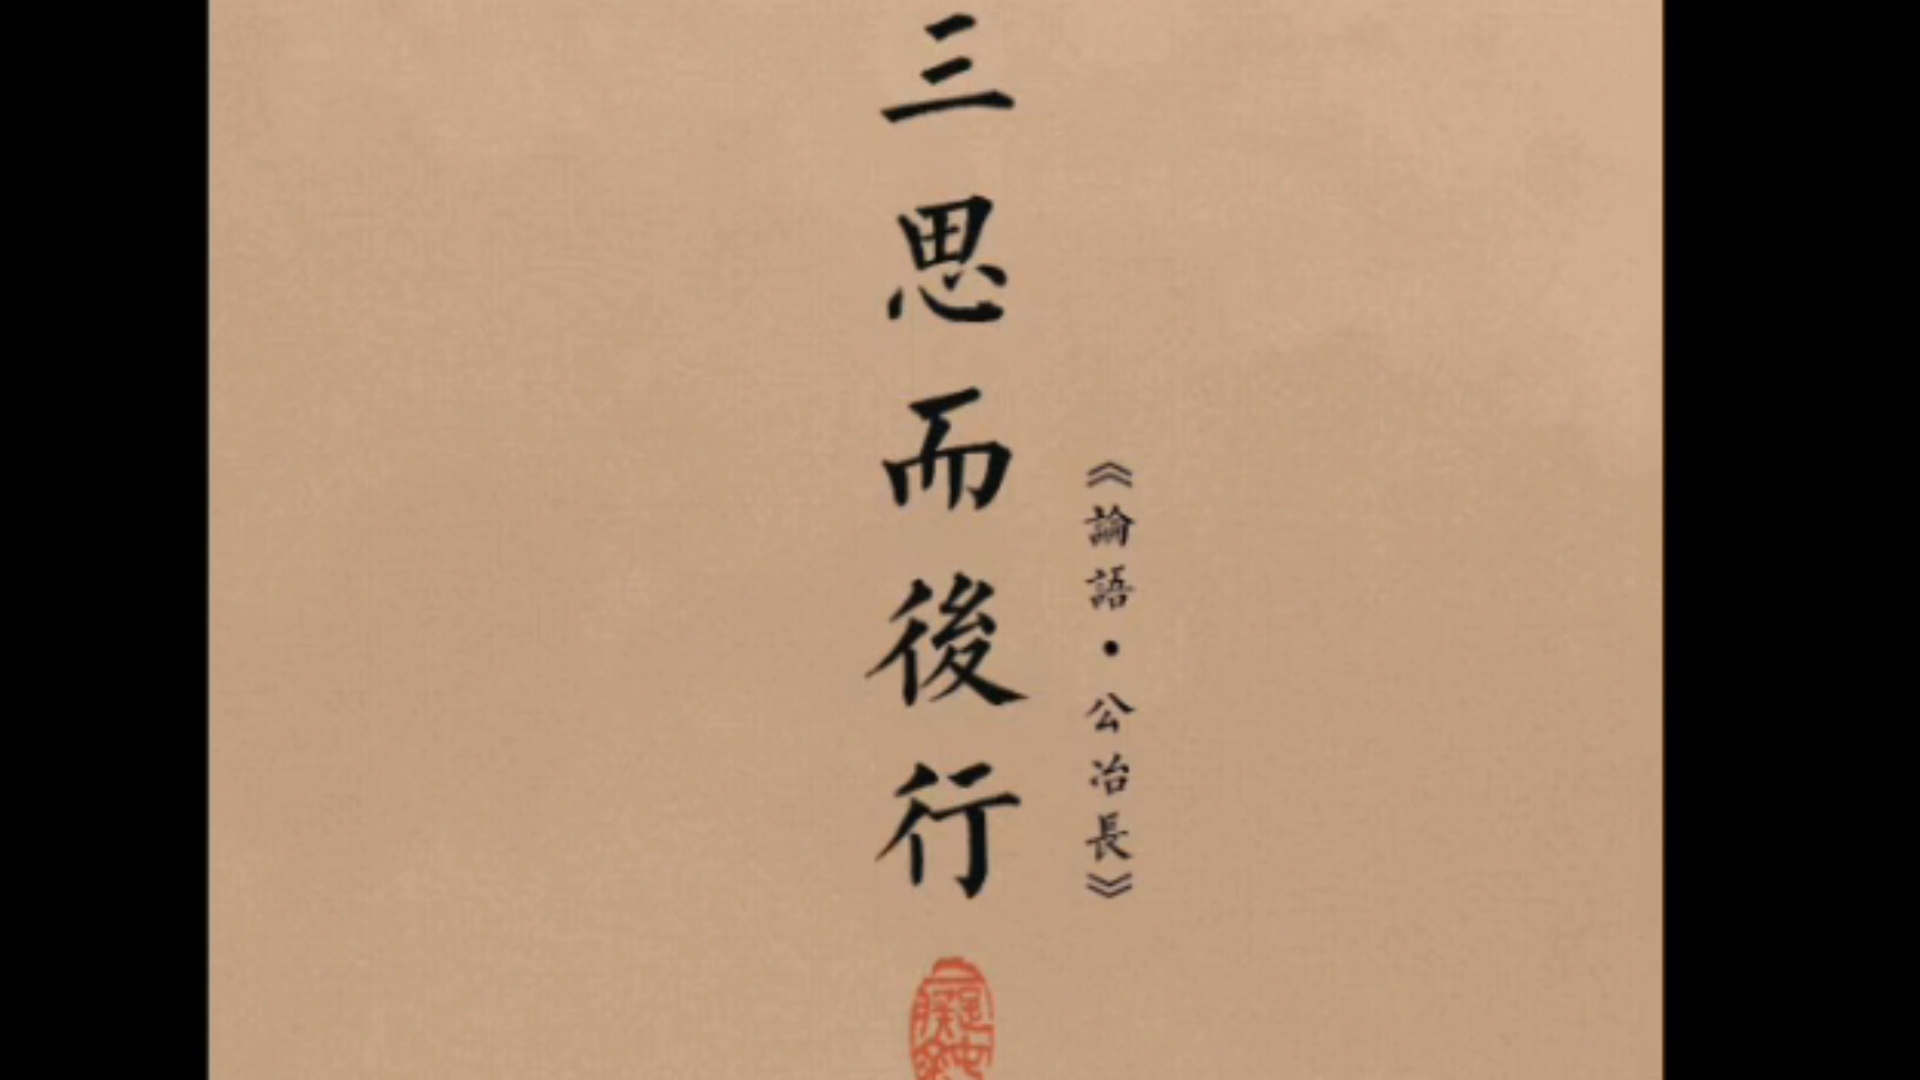 三思而後行
《論語•公冶長》